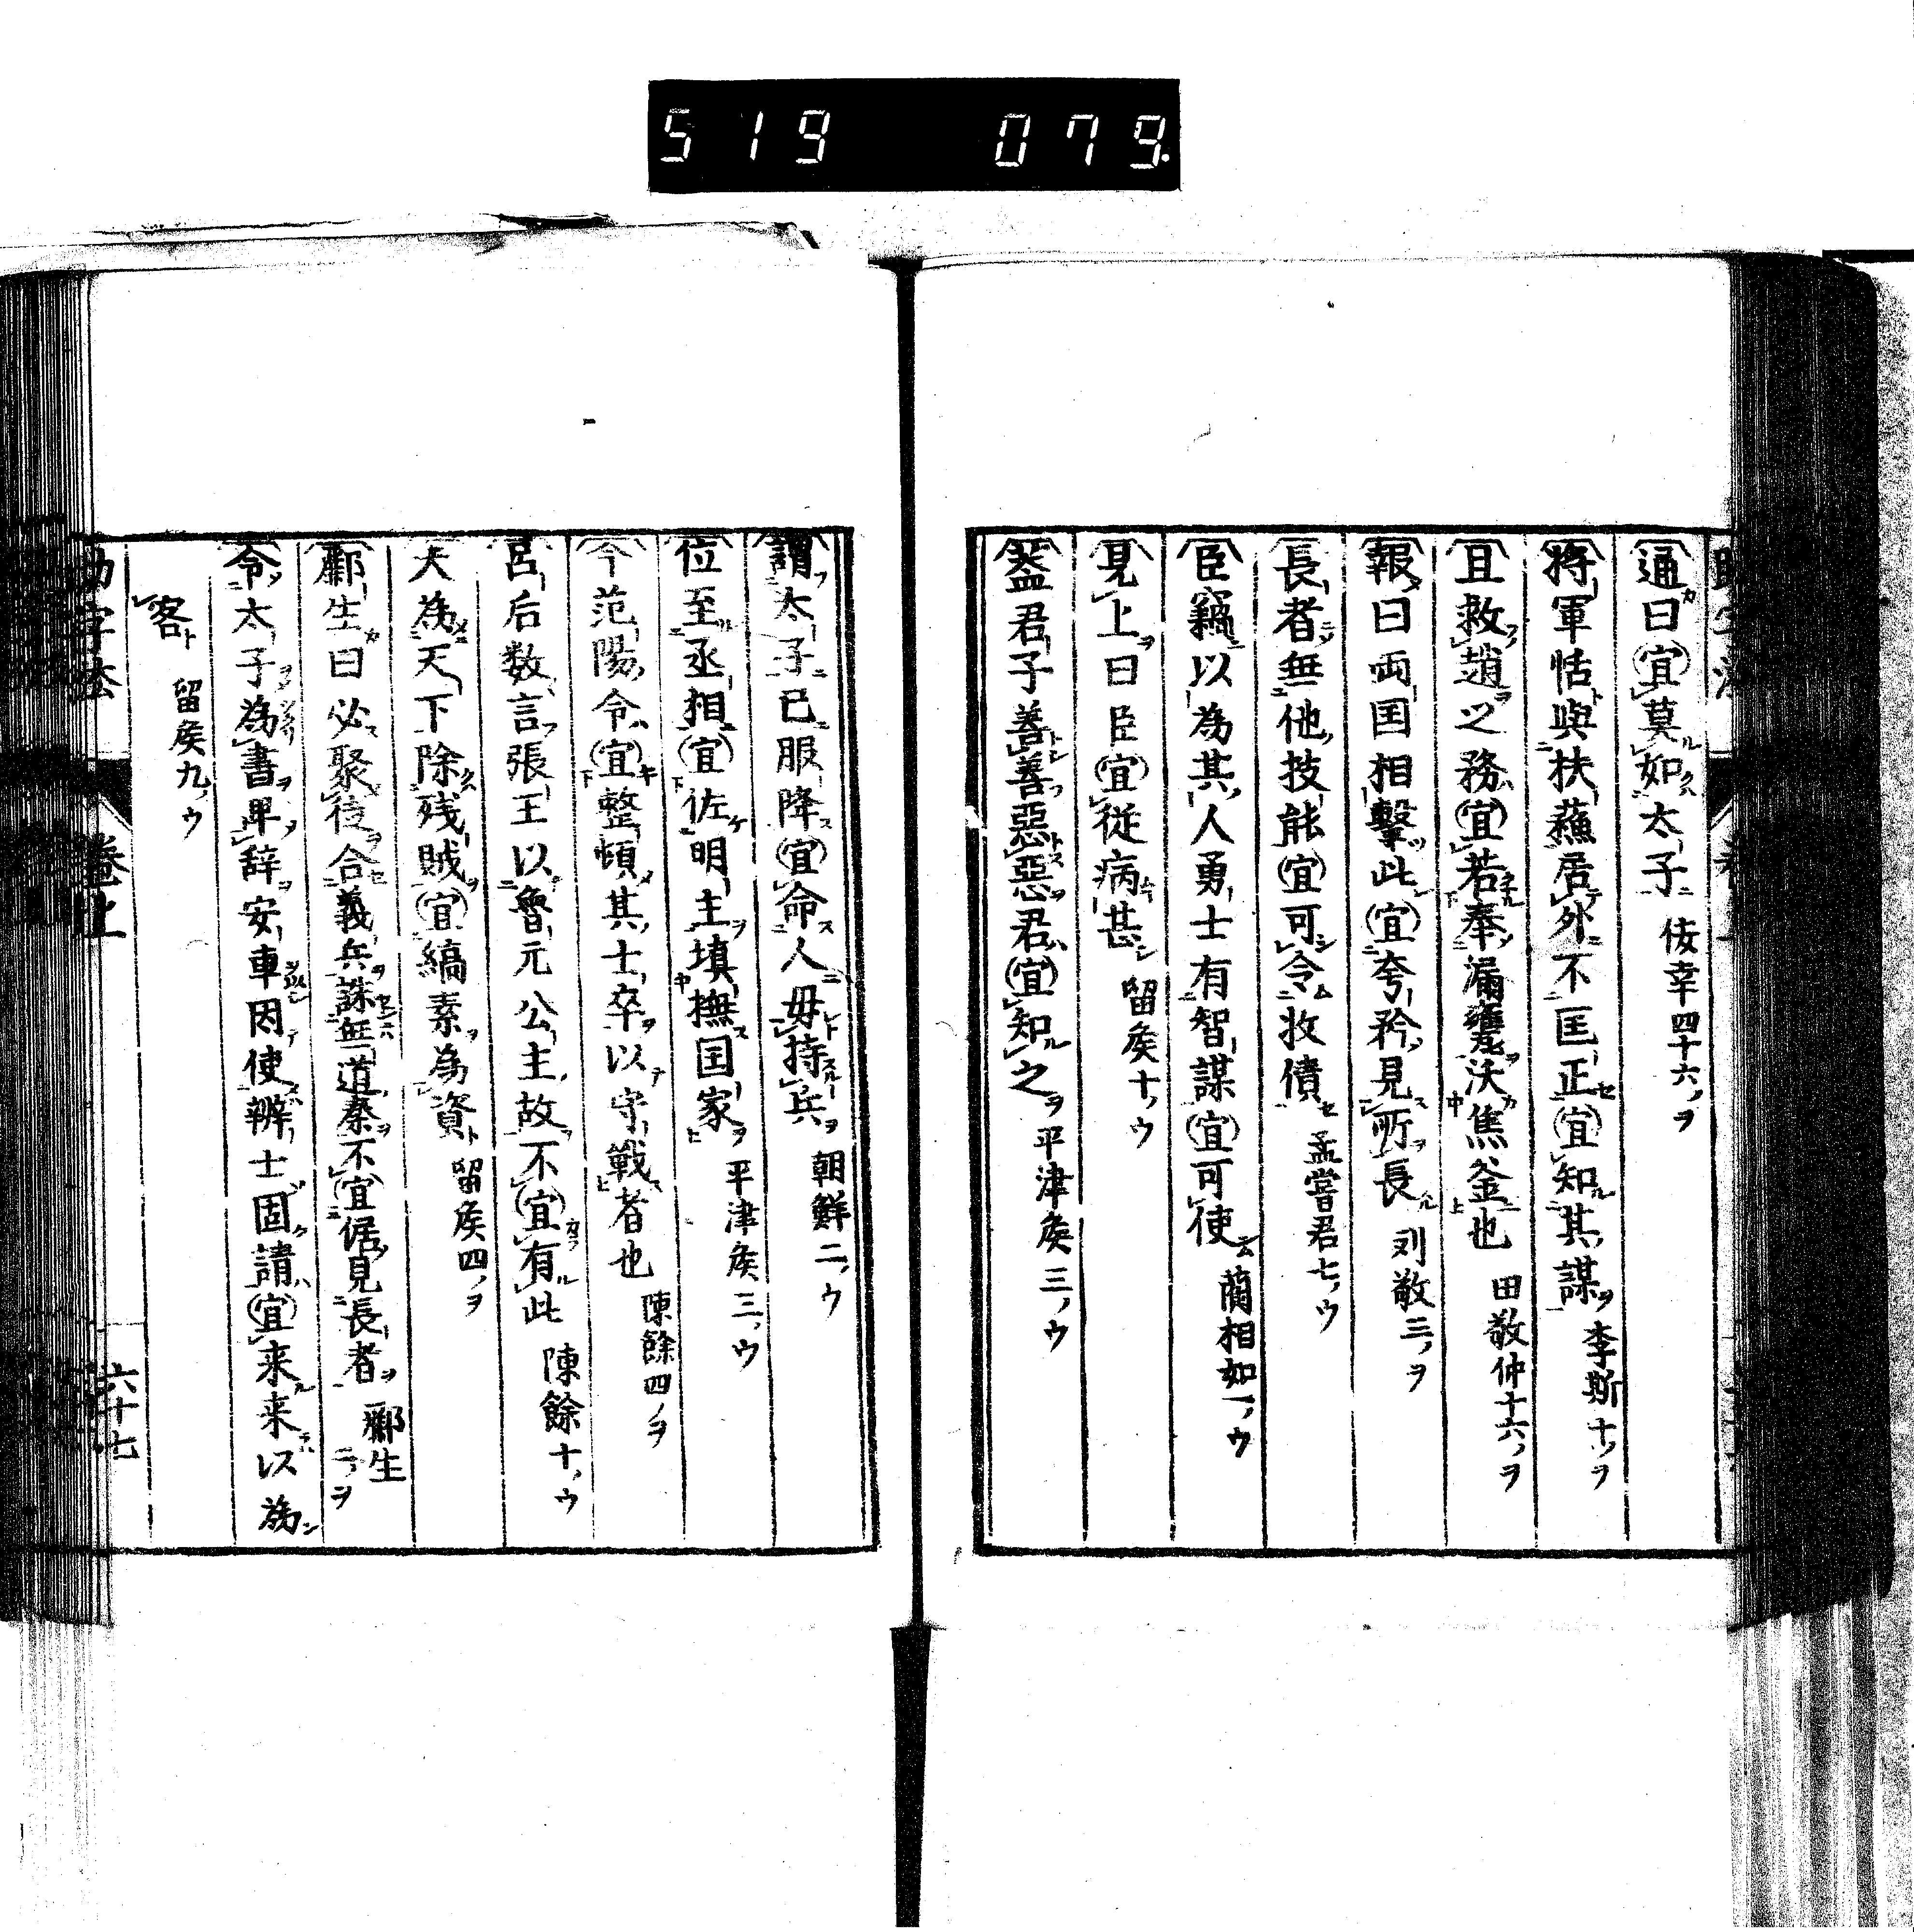 519 079.
通曰宜莫如太子 佞幸四十六ノヲ
将軍恬與扶蘇居外不匡正宜知其謀 李斯十ノヲ
且救趙之務宜若奉漏甕沃焦釜也 田敬仲十六ノヲ
報曰両国相撃此宜夸矜見所長 刘敬三ノヲ
長者無他技能宜可令收債 孟嘗君七ノウ
臣竊以為其人勇士有智謀宜可使 藺相如一ノウ
見上曰臣宜従病甚 留矦十ノウ
蓋君子善善惡惡君宜知之 平津矦三ノウ
謂太子已服降宜命人毋持兵 朝鮮二ノウ
位至丞相宜佐明主填撫国家 平津矦三ノウ
今范陽令宜整頓其士卒以守戰者也 陳餘四ノヲ
呂后数言張王以魯元公主故不宜有此 陳餘十ノウ
夫為天下除残賊宜縞素為資 留矦四ノヲ
酈生曰必聚徒合義兵誅無道秦不宜倨見長者 酈生二ノヲ
令太子為書卑辞安車因使辨士固請宜来来以為
客 留矦九ノウ
助字法 巻上 六十七